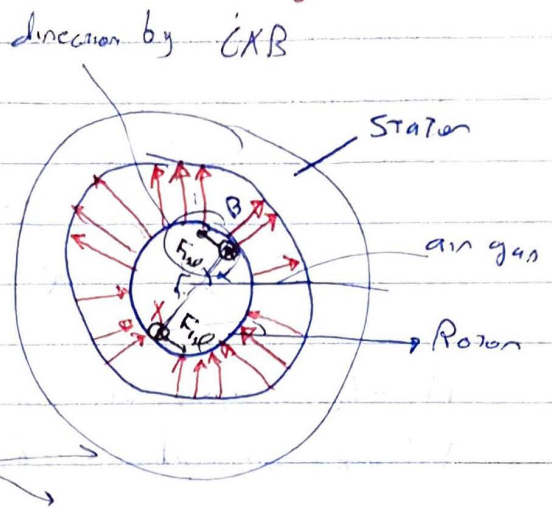 direction by i×B
Stator
B
air gap
F
F
Rotor